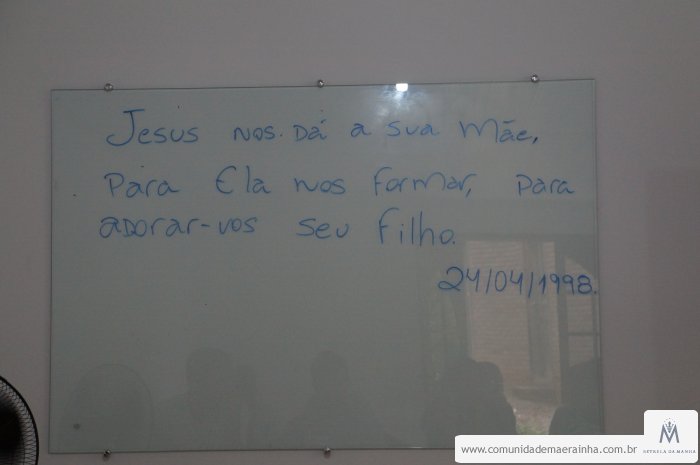 Jesus nos. Dá a sua Mãe,
Para Ela nos formar, para
adorar-vos seu filho.
24/04/1998.
www.comunidademaerainha.com.br
M
ESTRELA DA MANHÃ